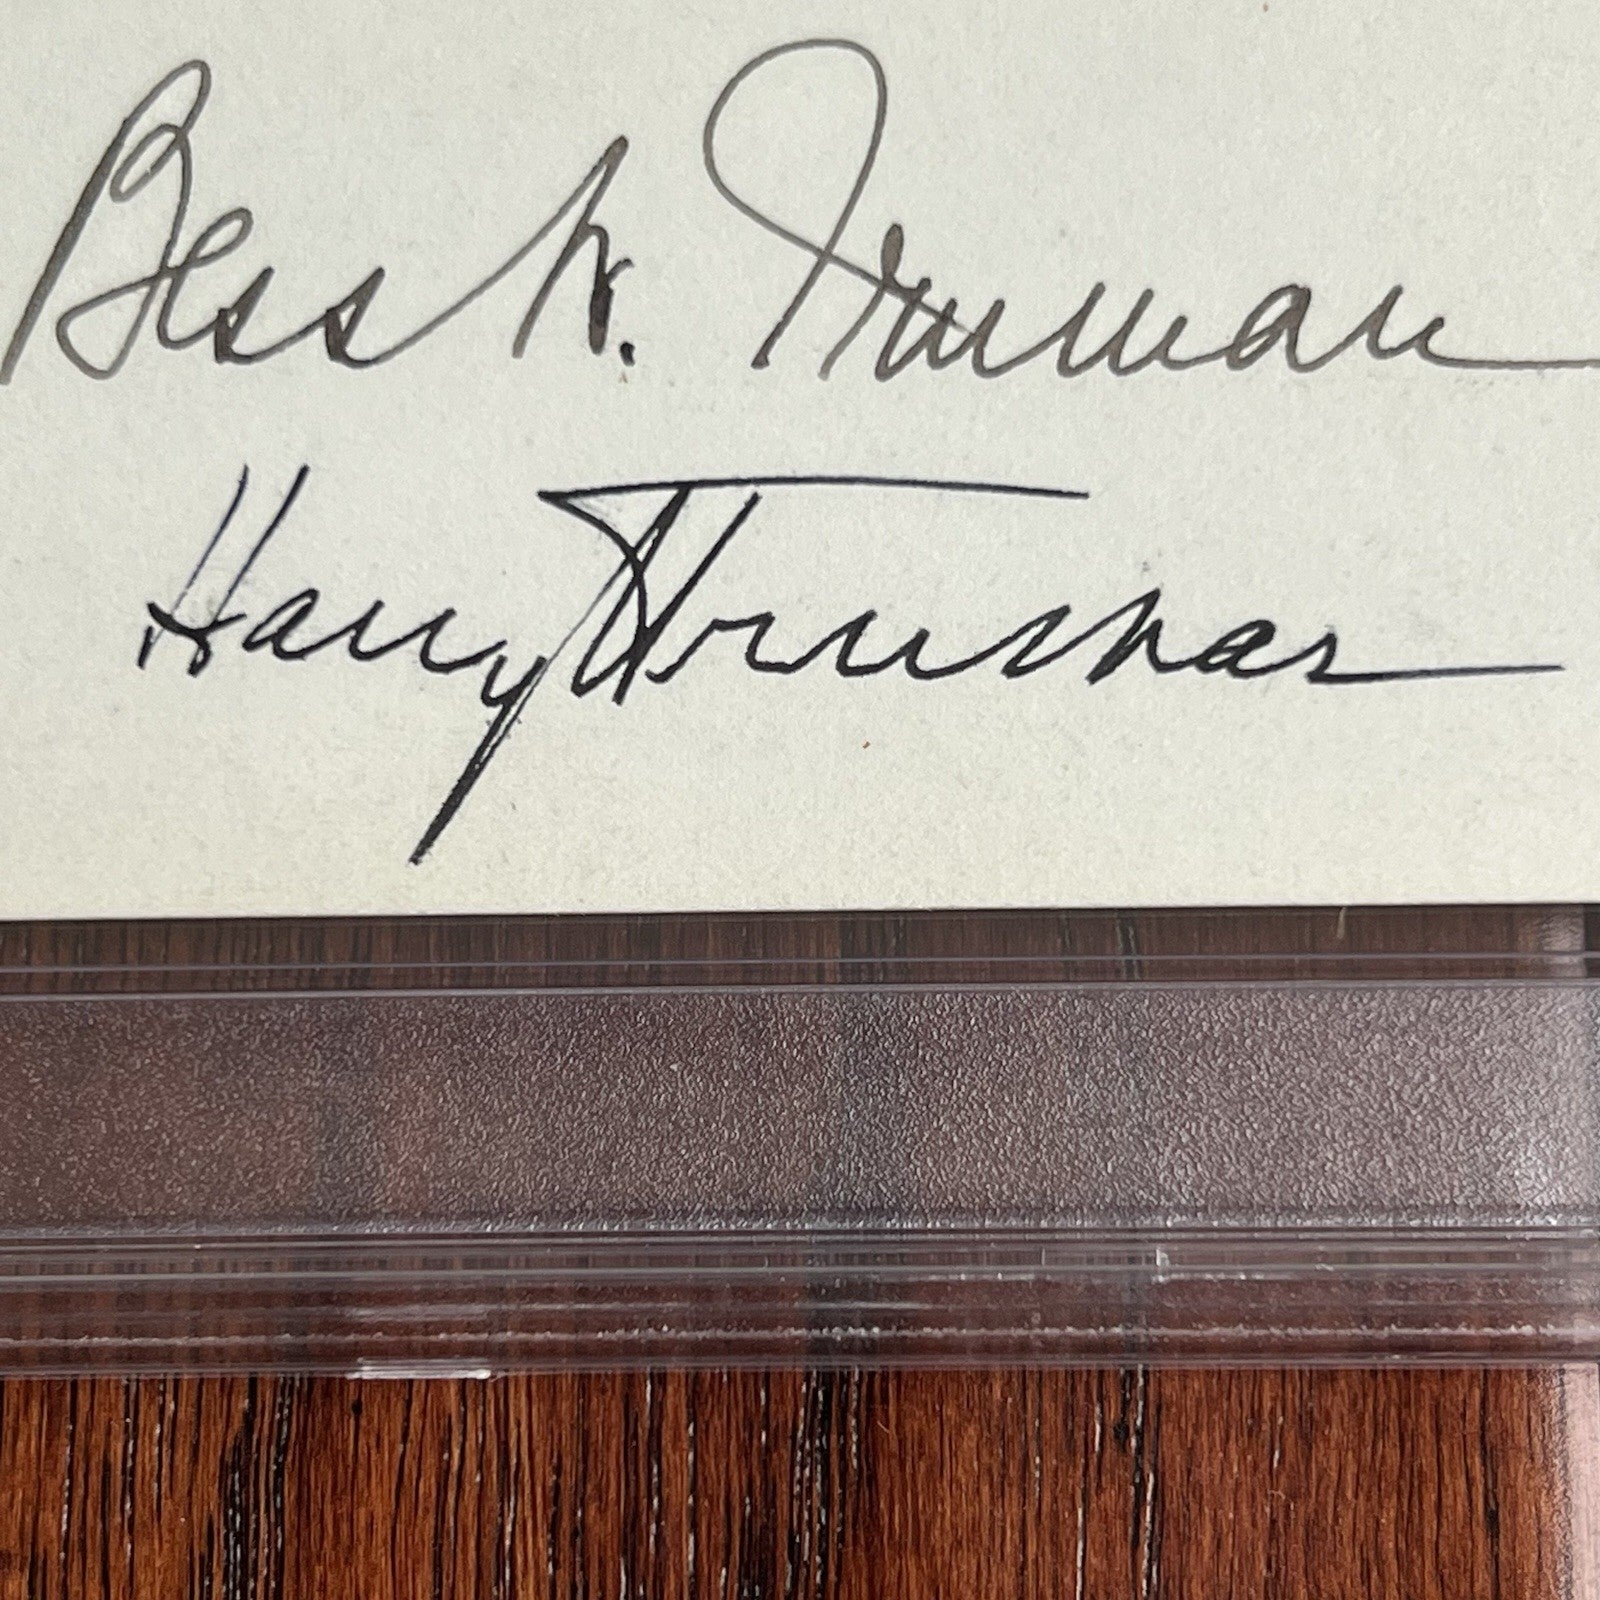 Bess W. Truman
Harry Truman